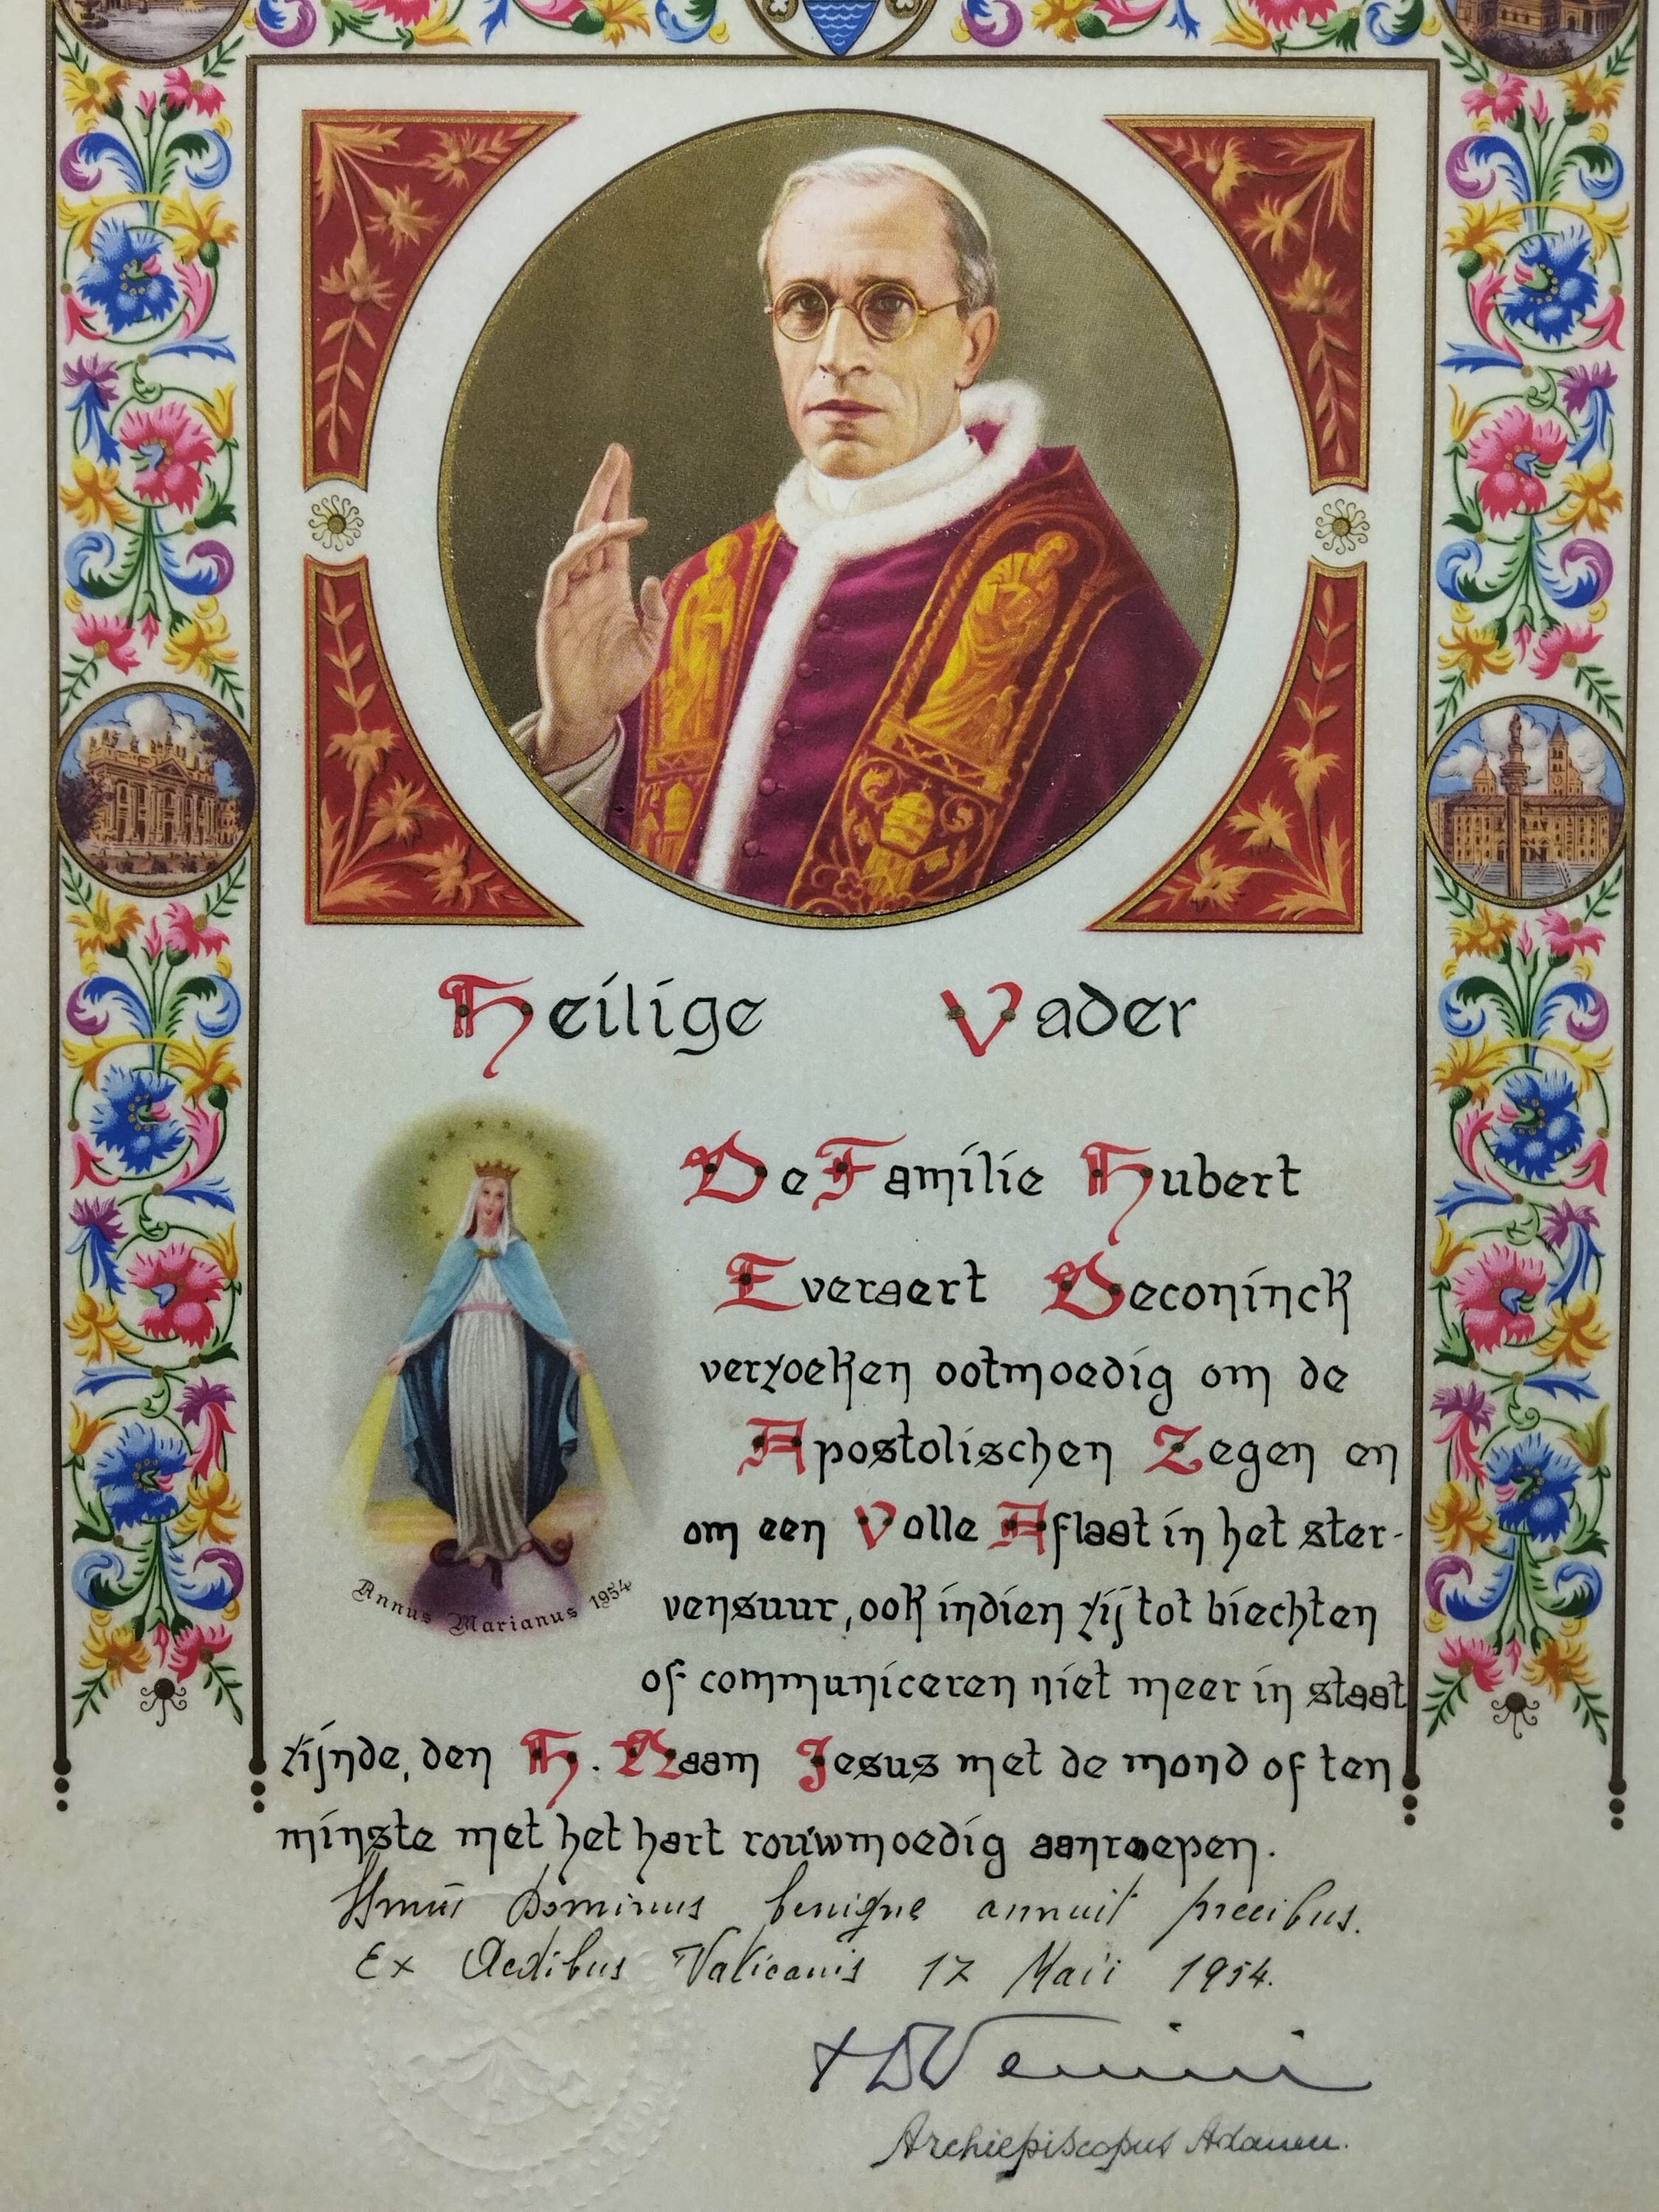 Heilige Vader
De Familie Hubert
Everaert Deconinck
verzoeken ootmoedig om de
Apostolischen Zegen en
om een Volle Aflaat in het ster-
vensuur, ook indien zij tot biechten
of communiceren niet meer in staat
zijnde, den H. Naam Jesus met de mond of ten
minste met het hart rouwmoedig aanroepen.
Annus Marianus 1954
Dominus benigne annuit precibus.
Ex Aedibus Vaticanis 17 Maii 1954.
Archiepiscopus Adanen.